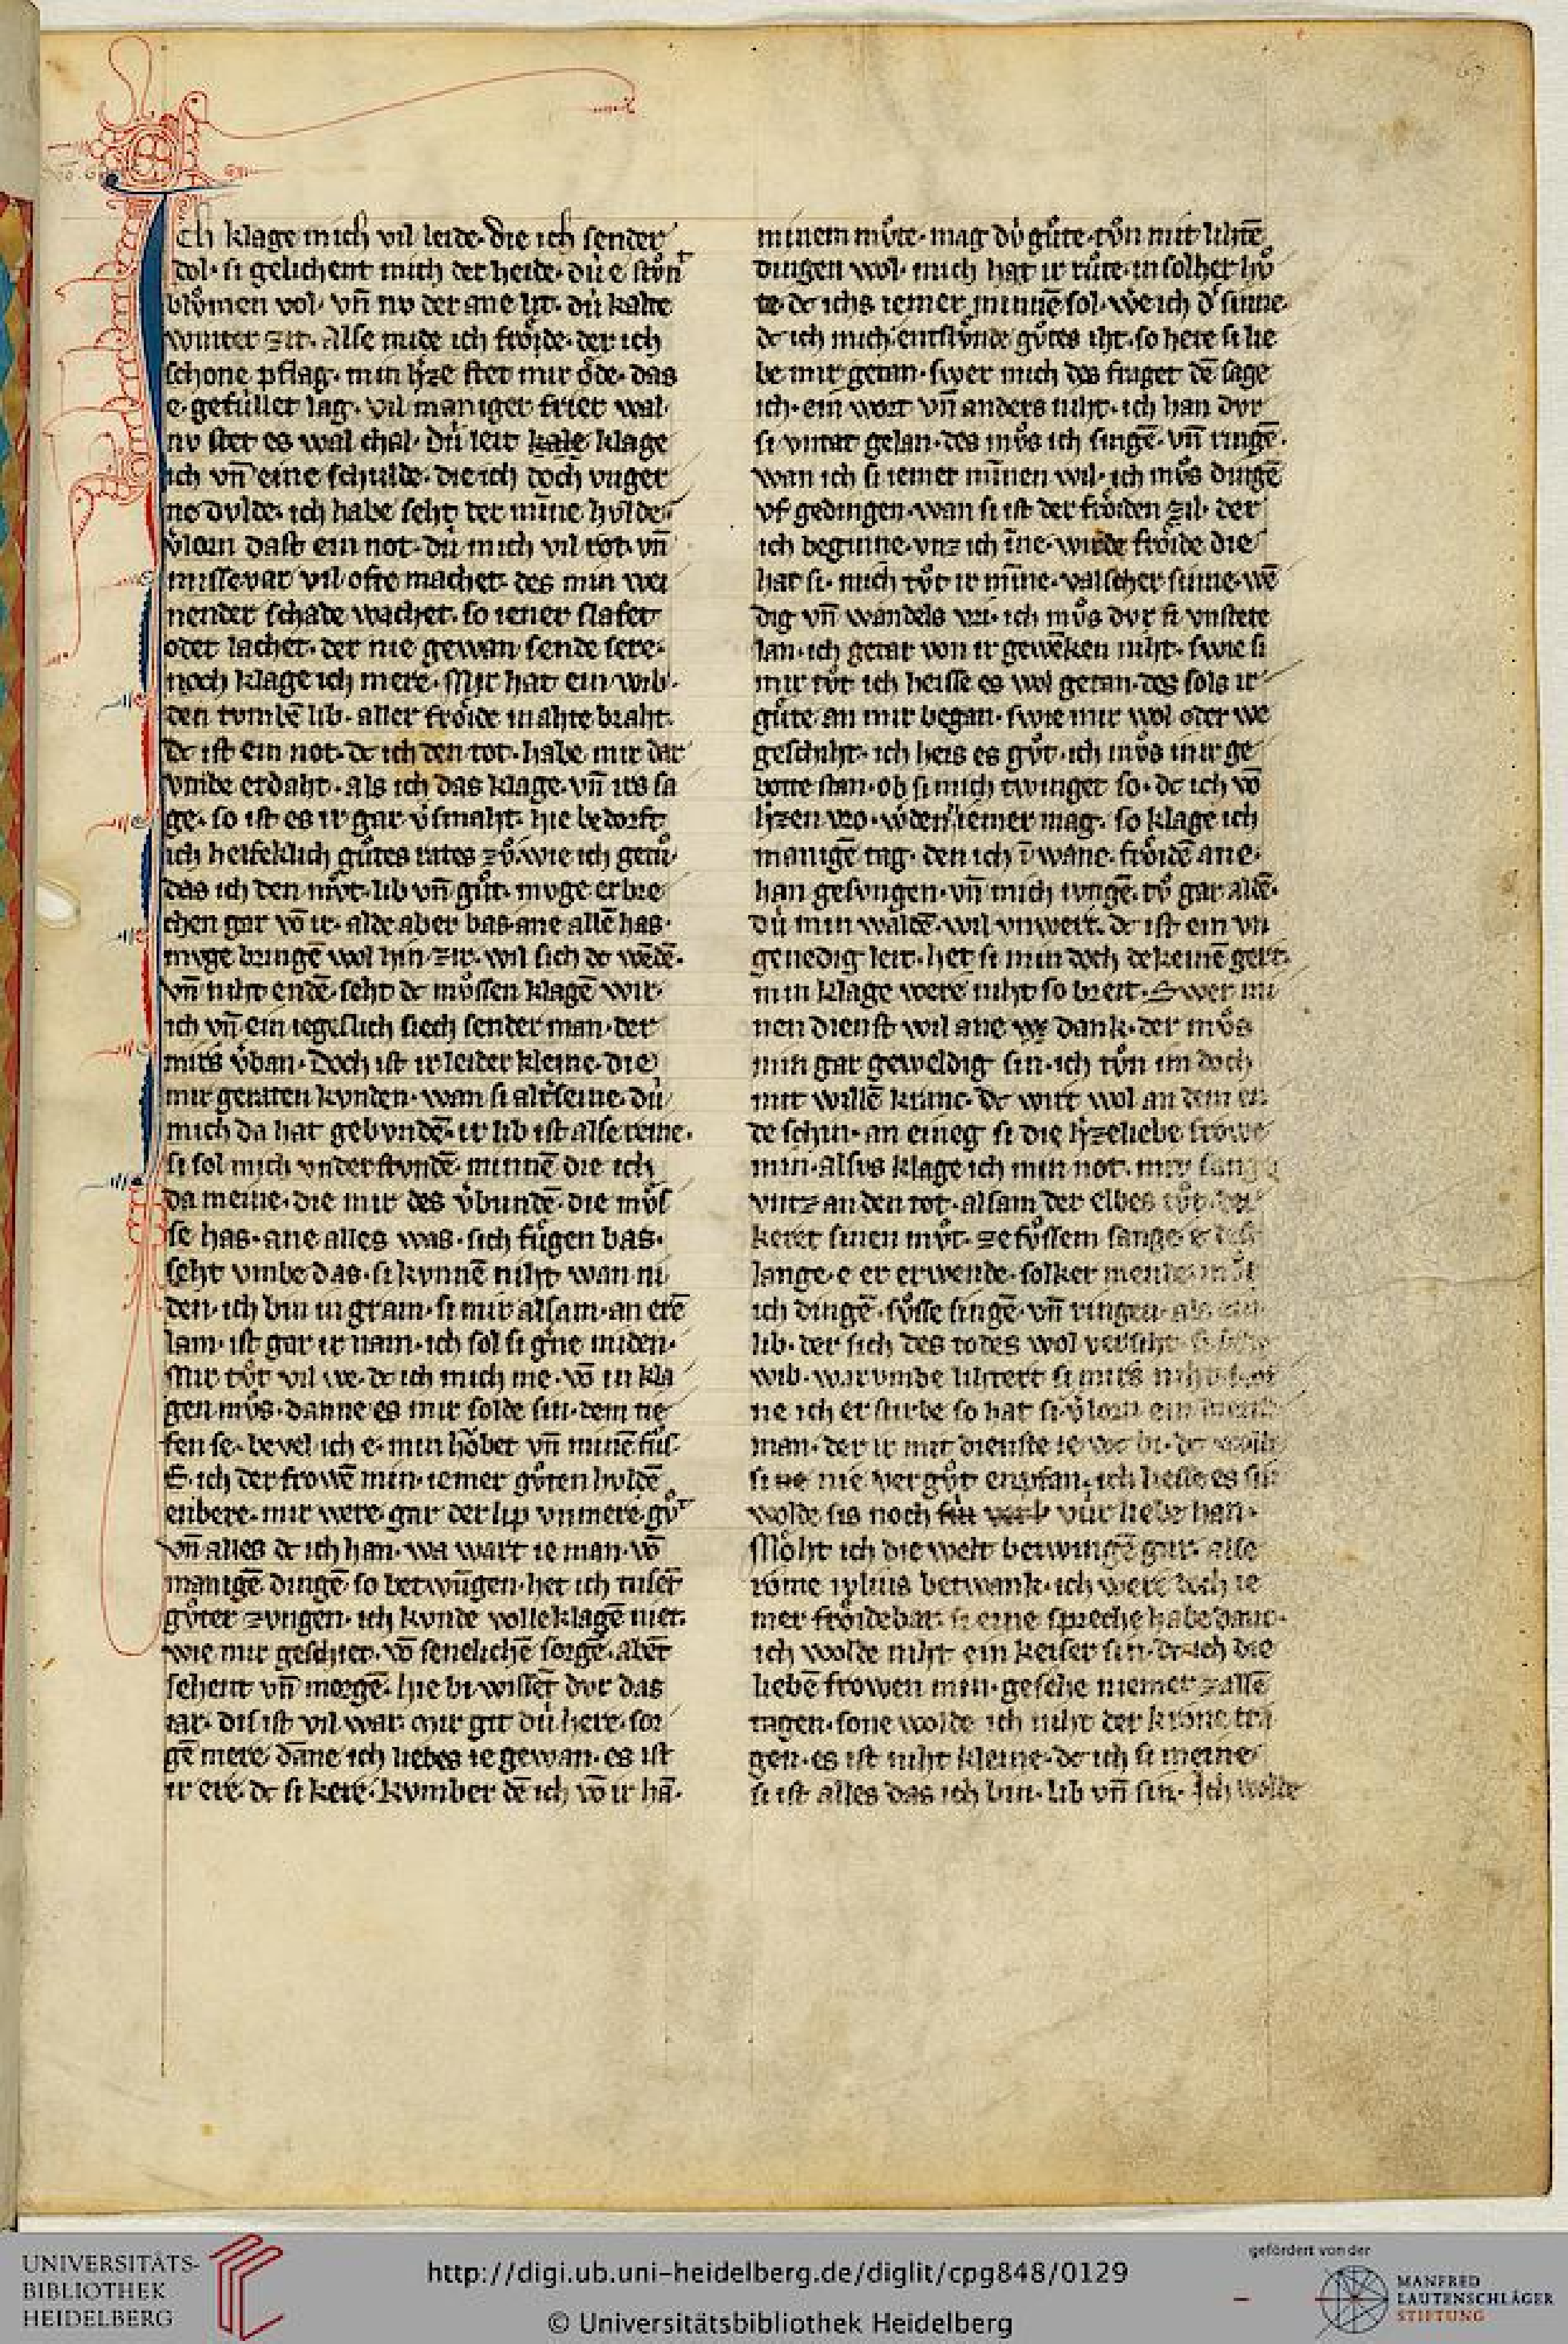 Ich klage mich vil leide· die ich sender
dol· si gelichent mich der heide· dǘ e stůnt
blůmen vol· vn̄ nv der ane lit· dǘ kalte
winter zit· Alse mide ich froͤide· der ich
schone pflag· min h'ze stet mir oͤde· das
e· gefüllet lag· vil maniger frier wal·
nv stet es wal chal· dǘ leit kale klage
ich vn̄ eine schulde· die ich doch vnger
ne dvlde· ich habe seht der min̄e hvlde·
v'lorn dast ein not· dǘ mich vil rot· vn̄
missevar vil ofte machet· des min wei
nender schade wachet· so iener slafet
oder lachet· der nie gewan sende sere·
noch klage ich mere· Mir hat ein wib·
den tvmbē lib· aller froͤide in ahte braht·
dc ist ein not· dc ich den tot· habe mir dar
vmbe erdaht· als ich das klage· vn̄ irs sa
ge· so ist es ir gar v'smaht· hie bedorft
ich helfeklich gůtes rates zů· wie ich getů·
das ich den můt· lib vn̄ gůt· mvge erbre
chen gar vō ir· alde aber bas· ane allē has·
mvge bringē wol hin zir· wil sich dc wēdē·
vn̄ niht endē· seht dc můssen klagē wir·
ich vn̄ ein iegeslich siech sender man· der
mirs v'ban· Doch ist ir leider kleine· die
mir geraten kvnden· wan si alt'seine· dǘ
mich da hat gebvndē· ir lib ist alse reine·
si sol mich vnderstvndē· minnē die ich
da meine· die mir des v'bundē· die můs
se has· ane alles was· sich fügen bas·
seht vmbe das· si kvnnē niht wan ni
den· ich bin in gram· si mir alsam· an erē
lam· ist gar ir nam· ich sol si g'ne miden·
Mir tůt vil we· dc ich mich me· vō in kla
gen můs· danne es mir solde sin· dem tie
fen se· bevel ich e· min hoͮbet vn̄ minē fůs·
E· ich der frowē min· iemer gůten holdē
enbere· mir were· gar der lip vnmere· gůt
vn̄ alles dc ich han· wa wart ie man· vō
manigē dingē· so betwūgen· het ich tusēt
gůter zvngen· ich kvnde volle klagē niet·
wie mir geschiet· vō senelichē sorgē· abēt
sehent vn̄ morgē· hie bi wissēt dvr das
iar· dis ist vil war· mir git dǘ here· sor
gē mere· dāne ich liebes ie gewan· es ist
ir ere· dc si kere· kvmber dē ich vō ir hā·
minem můte· mag dǘ gůte· tůn mit lihtē
dingen wol· mich hat ir růte· in solher hů
te· dc ichs iemer minnē sol· were ich d' sinne·
dc ich mich entstůnde gůtes iht· so hete si lie
be mir getan· swer mich des fraget dē sage
ich· ein wort vn̄ anders niht· ich han dvr
si vntat gelan· des můs ich singē· vn̄ ringē·
wan ich si iemer minnen wil· ich můs dingē
vf gedingen· wan si ist der froͤiden zil· der
ich beginne· vnz ich īne· wirde froͤide die
hat si· mich tůt ir min̄e· valscher sinne· wē
dig vn̄ wandels vri· ich můs dvr si vnstete
lan· ich getar von ir gewēken niht· swie si
mir tůt ich heisse es wol getan· des sols ir
gůte· an mir began· swie mir wol oder we
geschiht· ich heis es gůt· ich můs in ir ge
botte stan· ob si mich twinget so· dc ich vō
h'zen vro· w'den iemer mag· so klage ich
manigē tag· den ich ī wane· froͤidē ane·
han gesvngen· vn̄ mich ivngē· tů gar aldē·
dǘ min waldē· wil vnwert· dc ist ein vn
genedig leit· het si min doch dekeinē gert·
min klage were niht so breit· Swer mi
nen dienst wil ane dank· der můs
min gar geweldig sin· ich tůn im doch
mit willē krane· dc wirt wol an dem en
de schin· an eineg si die h'zeliebe frowe
min· alsvs klage ich min not· min sang
vntz an den tot· alsam der elbes tůt· der
keret sinen můt· ze sůssem sange
lange· e er erwende· solker
ich dingē· sůsse singē· vn̄ ringen als ein
lib· der sich des todes wol versiht·
wib· warvmbe lihtert si mirs niht
ne ich ersturbe so hat si v'lorn ein
man· der ir mit dienste ie
si ne nie vergůt enpfan· ich hesse es
wolde sis noch für verb vür liebe han·
Moͤht ich die welt betwingē gar· alse
rome ivlius betwank· ich were doch ie
mer froͤidebar· si eine spreche habe danc·
ich wolde niht ein keiser sin· dc ich die
liebē frowen min· gesehe niemer zallē
tagen· sone wolde ich niht der krone tra
gen· es ist niht kleine· dc ich si meine
si ist alles das ich bin· lib vn̄ sin· Ich wolte
UNIVERSITÄTS-
BIBLIOTHEK
HEIDELBERG
http://digi.ub.uni-heidelberg.de/diglit/cpg848/0129
© Universitätsbibliothek Heidelberg
gefördert von der
MANFRED
LAUTENSCHLÄGER
STIFTUNG